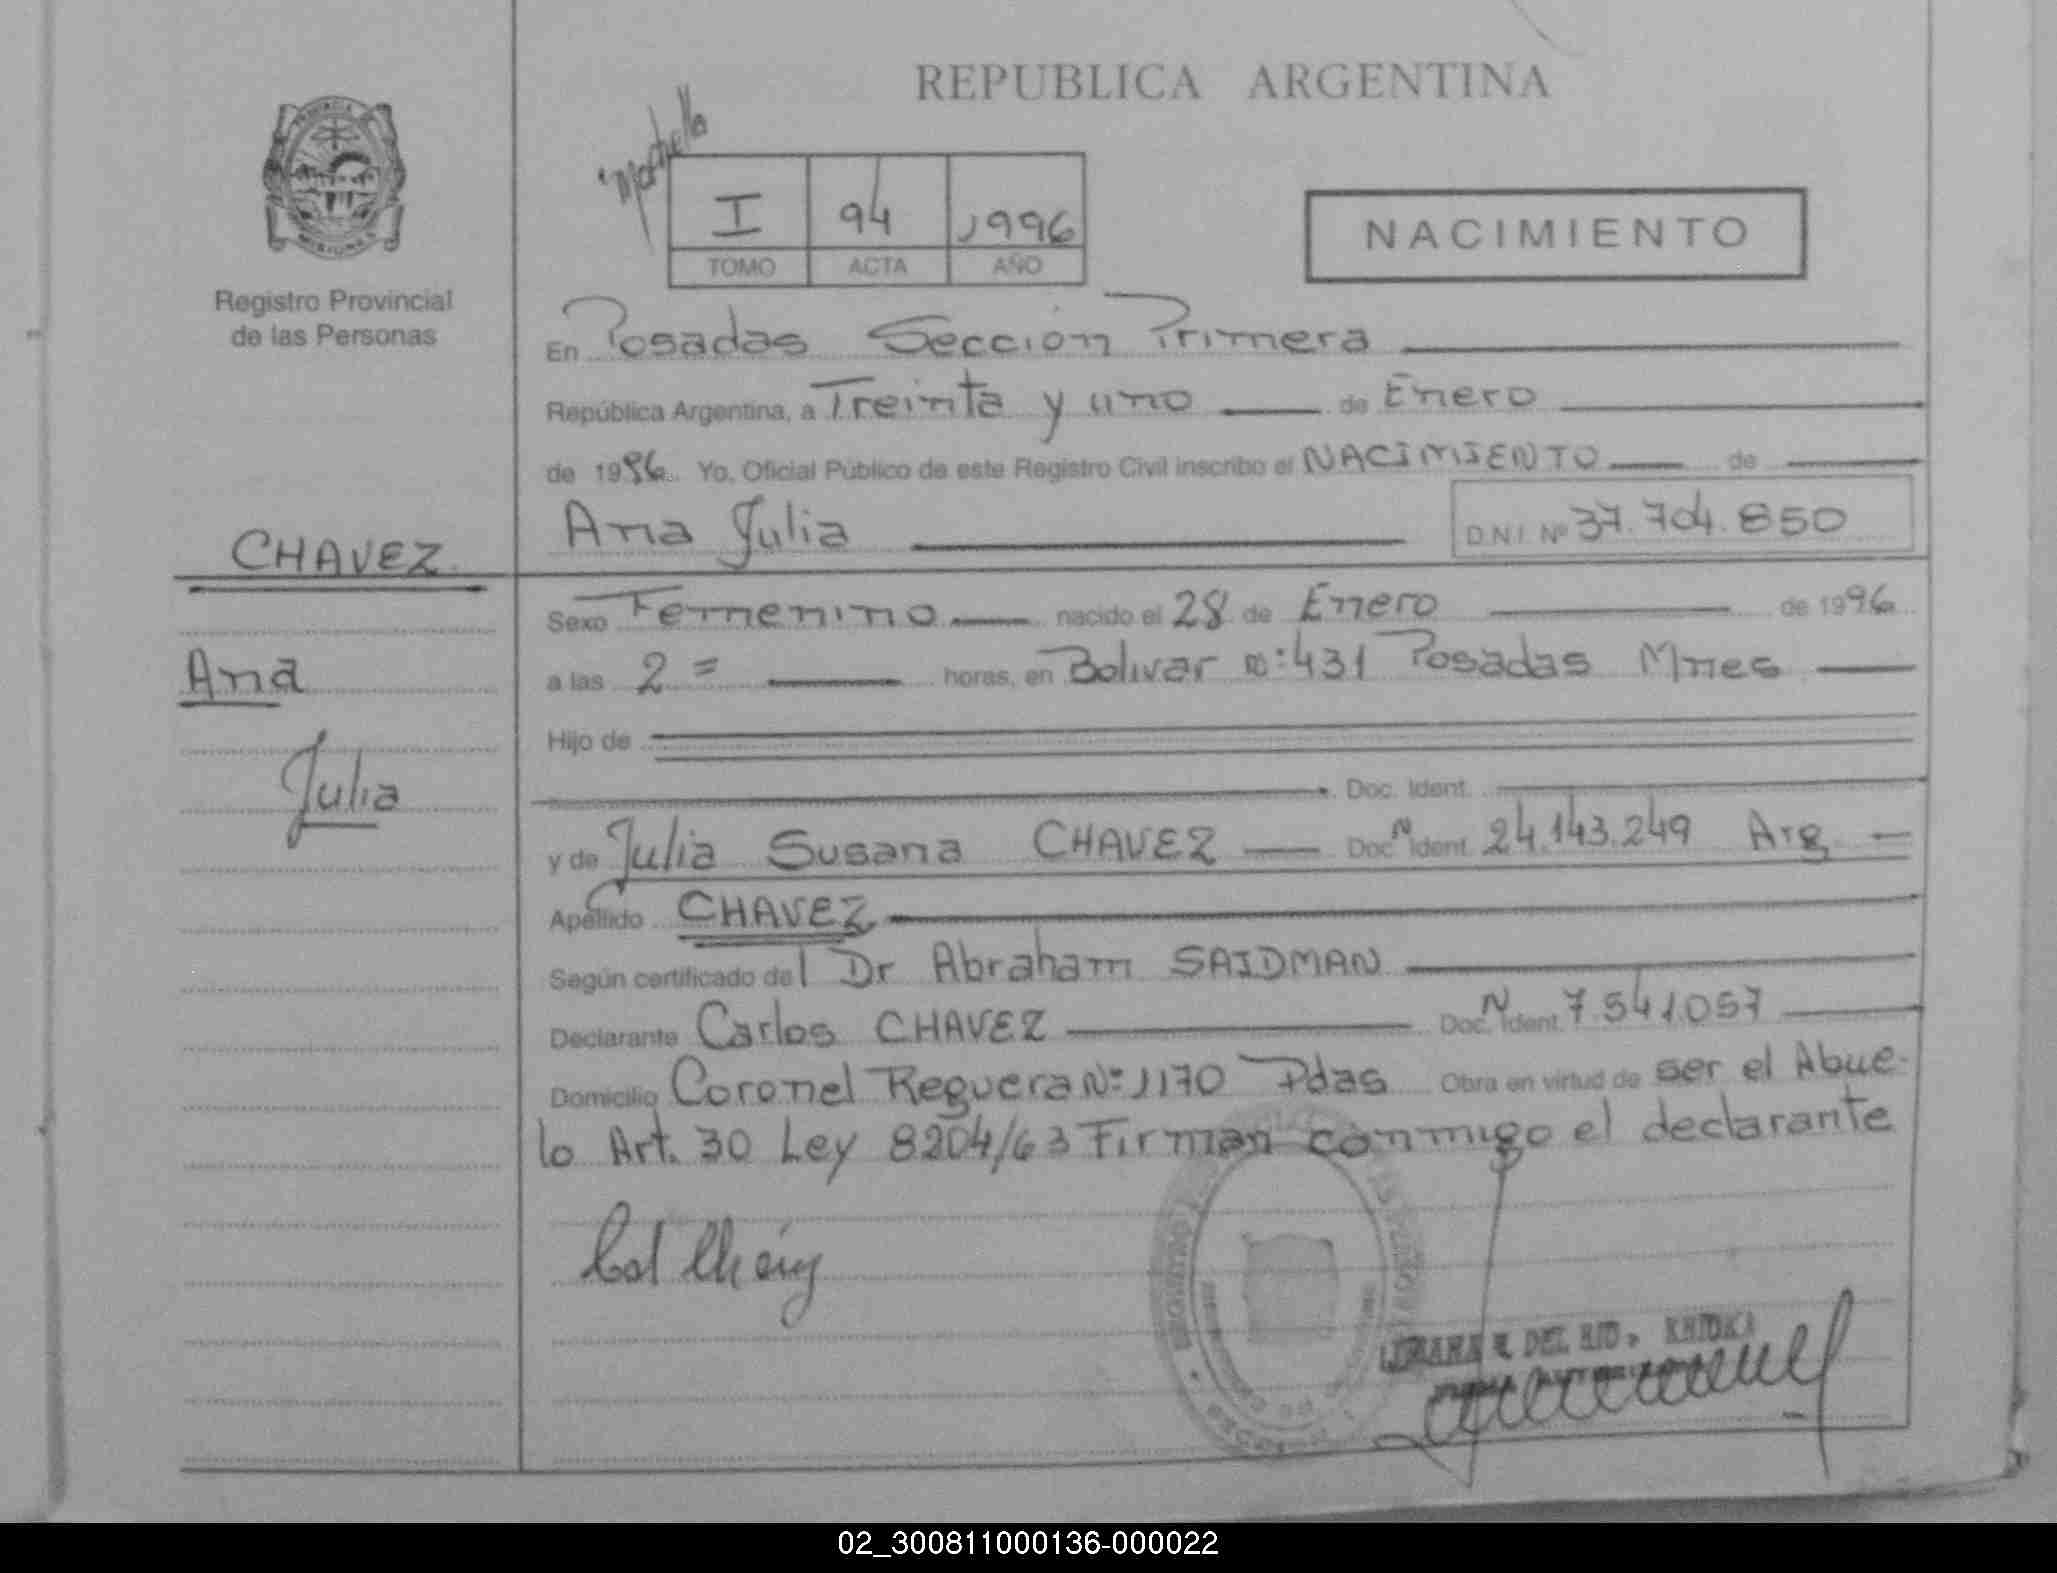 REPUBLICA ARGENTINA
PROVINCIA
MISIONES
Registro Provincial
de las Personas
I 94 1996
TOMO ACTA AÑO
NACIMIENTO
En Posadas Sección Primera
República Argentina, a Treinta y uno de Enero
de 1996 Yo, Oficial Público de este Registro Civil inscribo el NACIMIENTO de
Ana Julia D.N.I. Nº 37.704.850
CHAVEZ
Ana
Julia
Sexo Femenino nacido el 28 de Enero de 1996
a las 2 = horas, en Bolivar nº:431 Posadas Mnes
Hijo de
Doc. Ident.
y de Julia Susana CHAVEZ Doc. N Ident. 24.143.249 Arg
Apellido CHAVEZ
Según certificado del Dr Abraham SAIDMAN
Declarante Carlos CHAVEZ Doc. N Ident. 7.541.057
Domicilio Coronel Reguera Nº:1170 Pdas Obra en virtud de ser el Abue-
lo Art. 30 Ley 8204/63 Firman conmigo el declarante
REGISTRO
DEL
02_300811000136-000022